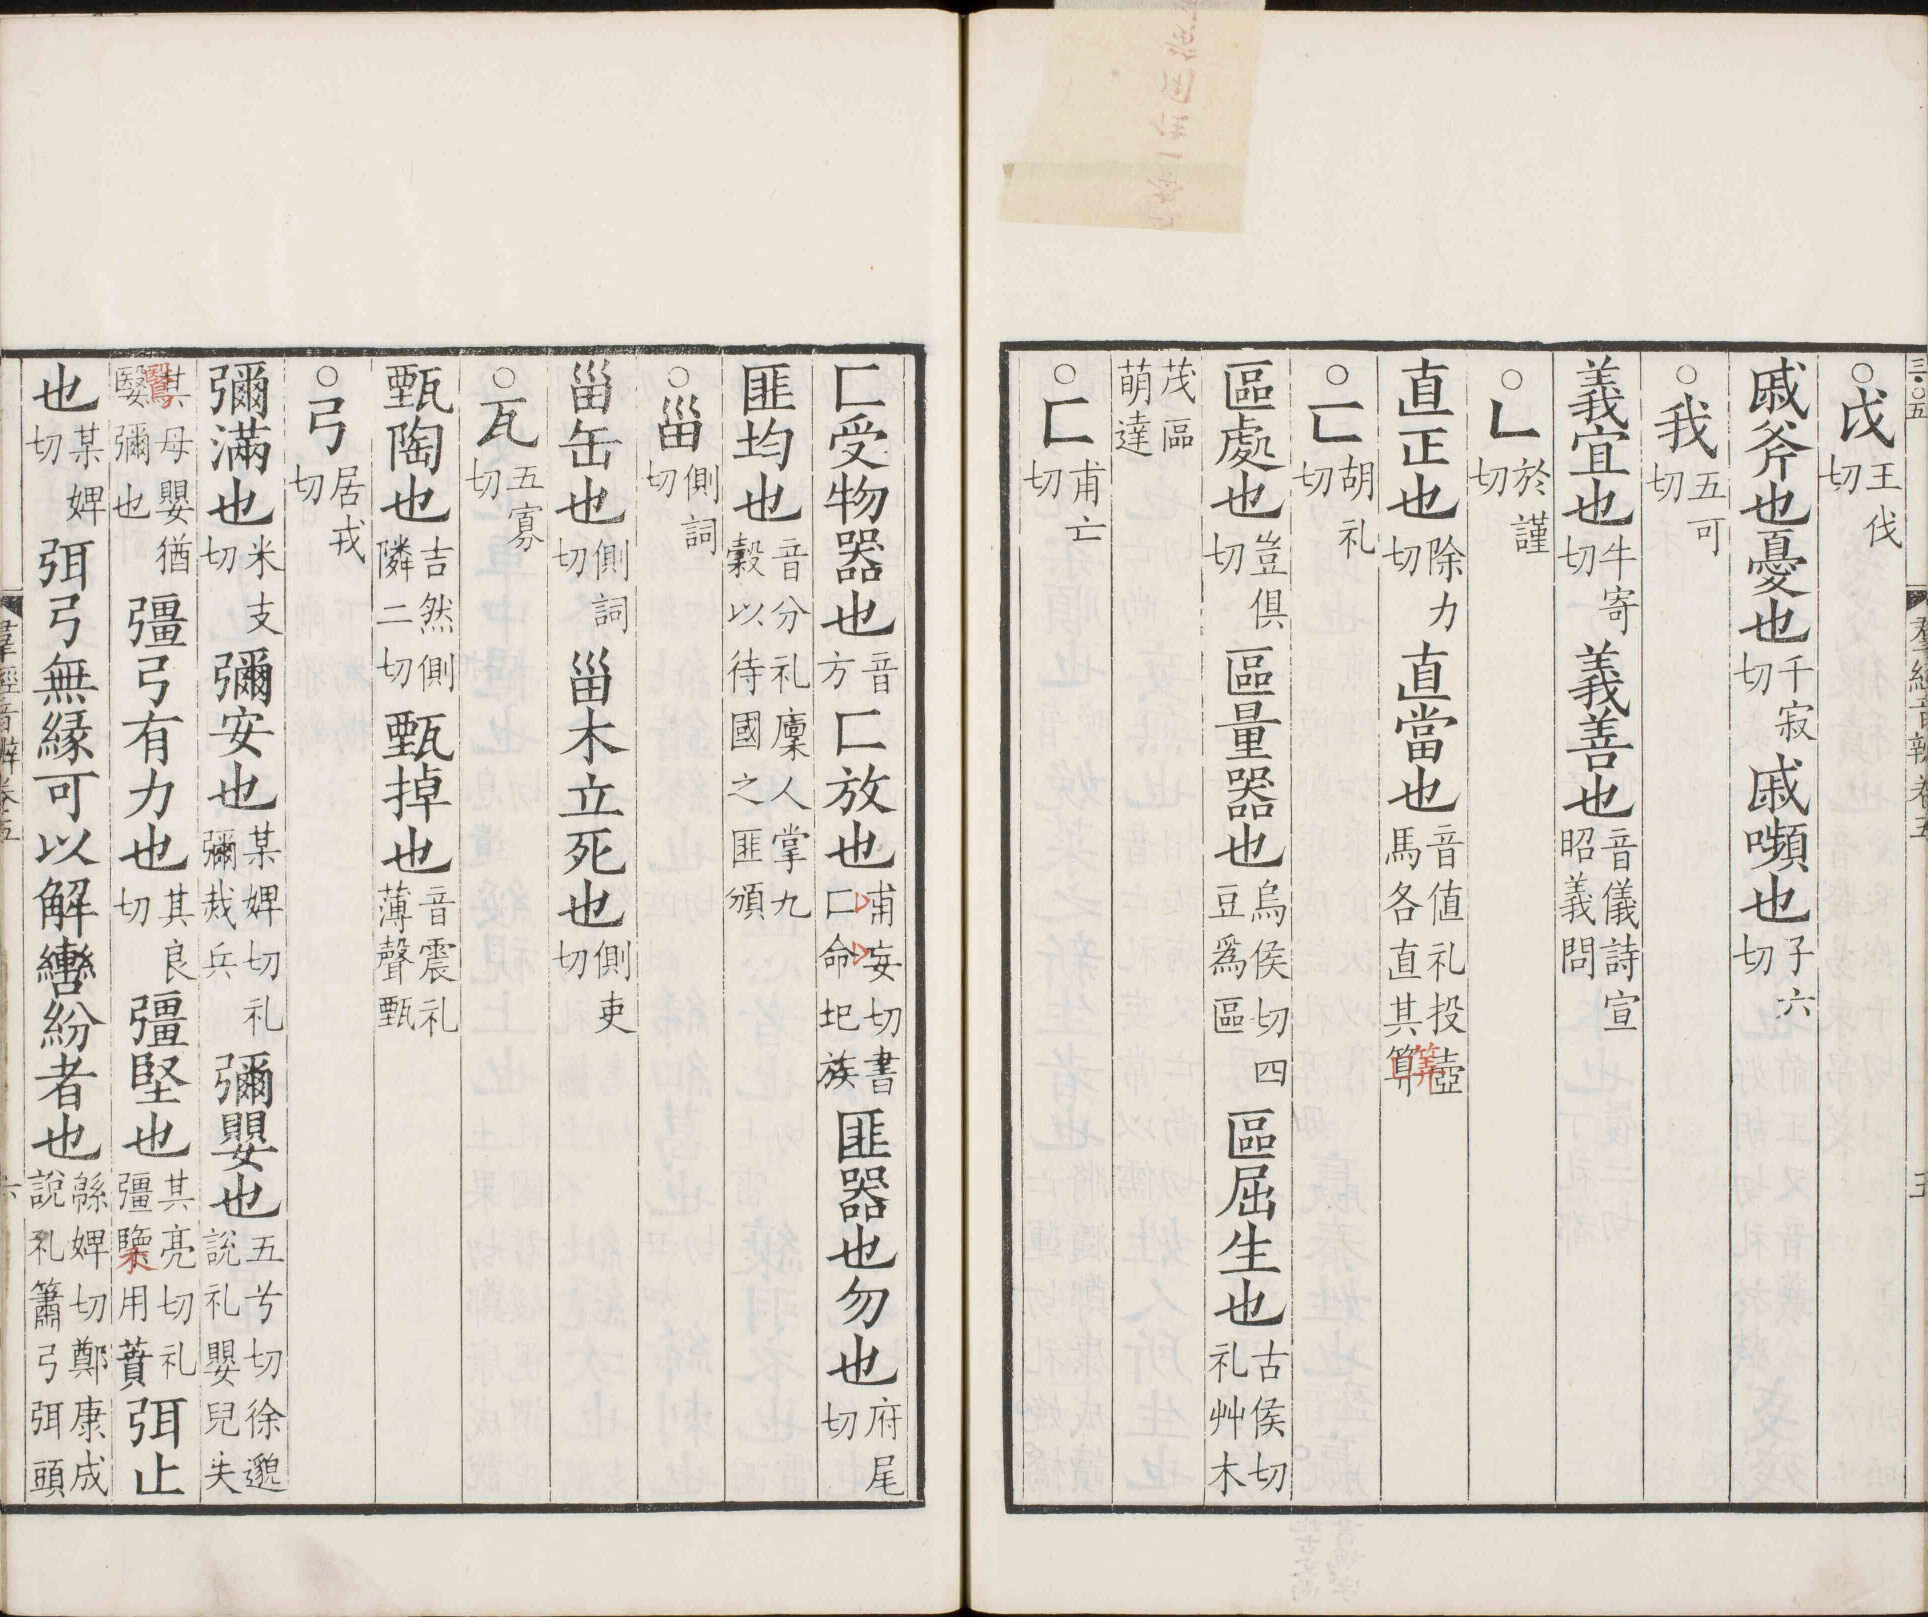 ○戉王伐切
戚斧也憂也千寂切戚嚬也子六切
○我五可切
義宜也牛寄切義善也音儀詩宣昭義問
○𠃊於謹切
直正也除力切直當也音值礼投壺馬各直其算
○匸胡礼切
區處也豈俱切區量器也烏侯切四豆爲區區屈生也古侯切礼艸木
茂區萌達
○匚甫亡切
匚受物器也音方匚放也甫妄切書匚命圮族匪器也勿也府尾切
匪均也音分礼廩人掌九穀以待國之匪頒
○甾側詞切
甾缶也側詞切甾木立死也側吏切
○瓦五寡切
甄陶也吉然側隣二切甄掉也音震礼薄聲甄
○弓居戎切
彌滿也米支切彌安也某婢切礼彌烖兵彌嬰也五兮切徐邈說礼嬰兒失
其母嬰猶嫛彌也彊弓有力也其良切彊堅也其亮切礼彊㯺用蕡弭止
也某婢切弭弓無緣可以解轡紛者也緜婢切鄭康成說礼簫弓弭頭
羣經音辨卷五
五
羣經音辨卷五
六